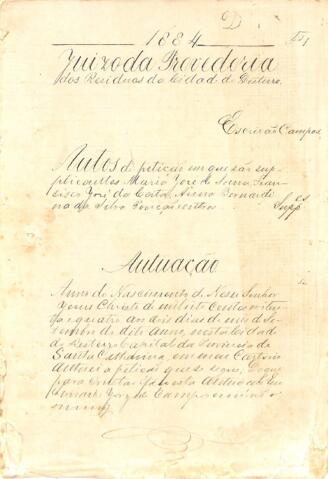 D
1884
Juizo da Provedoria
dos Residuos da Cidade do Desterro.
Escrivão Campos
Autos de petição em que são sup-
plicantes Maria José de Souza, Fran-
cisco José da Costa, Anna Bernardi-
na da Silva e outros
Supp.es
Autuação
Anno do Nascimento de Nosso Senhor
Jesus Christo de mil oito centos e oiten-
ta e quatro aos dois dias do mes de De-
sembro do dito anno, nesta Cidade
do Desterro Capital da Provincia de
Santa Catharina, em meu Cartorio
autoei a petição que se segue; Do que
para constar faço esta Autuação Eu